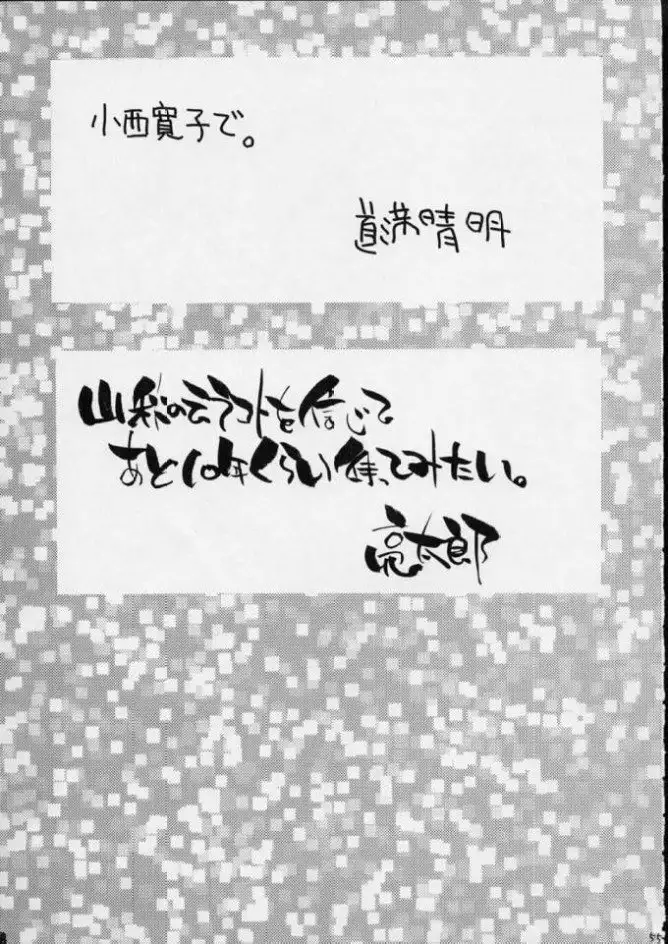 小西寛子で。
道満晴明
山梨の云うコトを信じて
あと10年くらい様ってみたい。
亮太郎